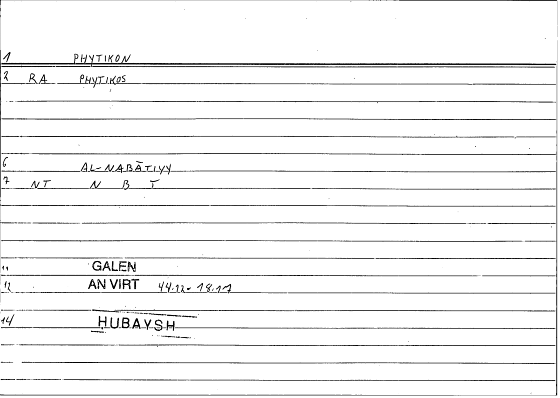 1 PHYTIKON
2 RA PHYTIKOS
6 AL-NABĀTIYY
7 NT N B T
11 GALEN
12 AN VIRT 44.12-18.17
14 HUBAYSH